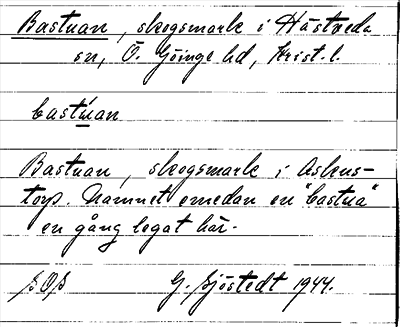 Bastuan, skogsmark i Hästveda
sn, Ö. Göinge hd, Krist. l.
bastu̱an
Bastuan, skogsmark i Askus-
torp. Namnet emedan en "bastua"
en gång legat här.
SOS G. Sjöstedt 1944.